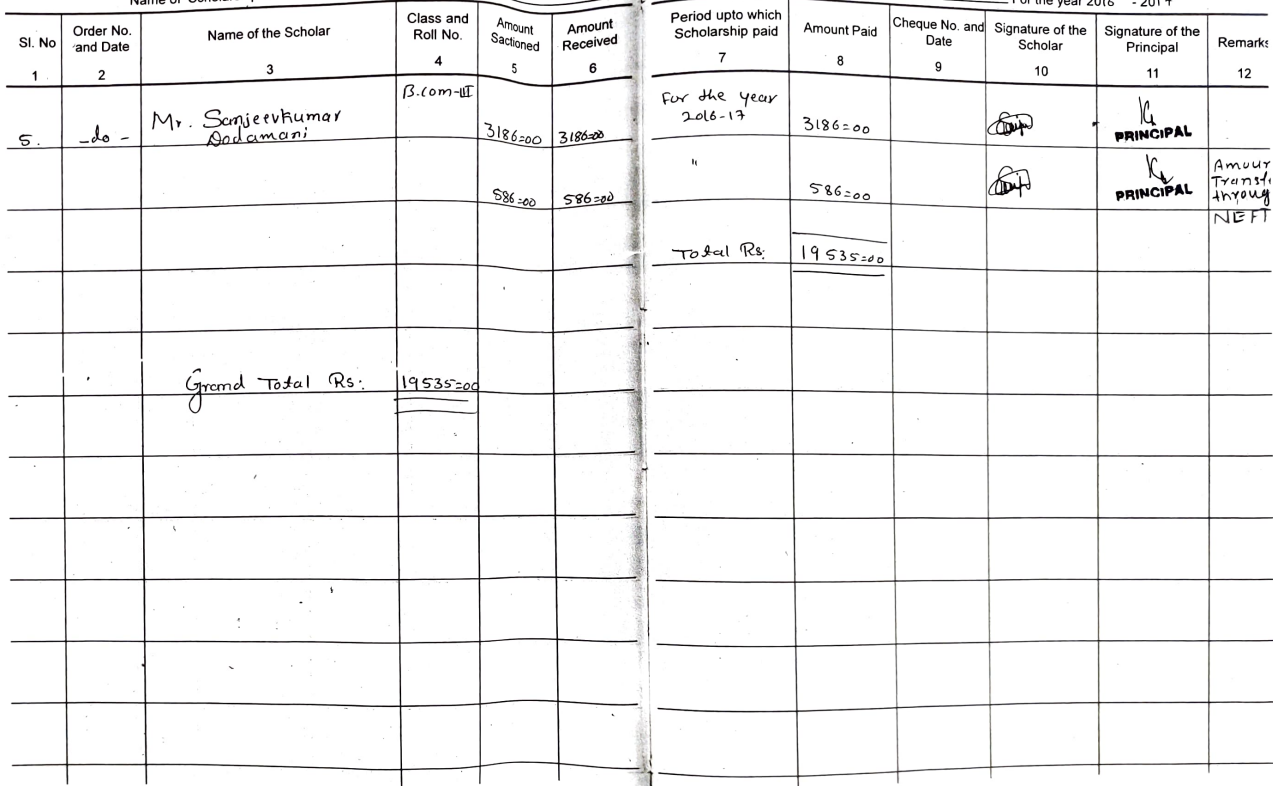 For the year 2016 - 2017
Sl. No
Order No. and Date
Name of the Scholar
Class and Roll No.
Amount Sactioned
Amount Received
Period upto which Scholarship paid
Amount Paid
Cheque No. and Date
Signature of the Scholar
Signature of the Principal
Remarks
1 2 3 4 5 6 7 8 9 10 11 12
5. -do- Mr. Sanjeevkumar Dodamani B.com-III 3186=00 3186=00 For the year 2016-17 3186=00 PRINCIPAL
586=00 586=00 " 586=00 PRINCIPAL
Amour
Transf
throug
NEFT
Total Rs: 19535=00
Grand Total Rs: 19535=00